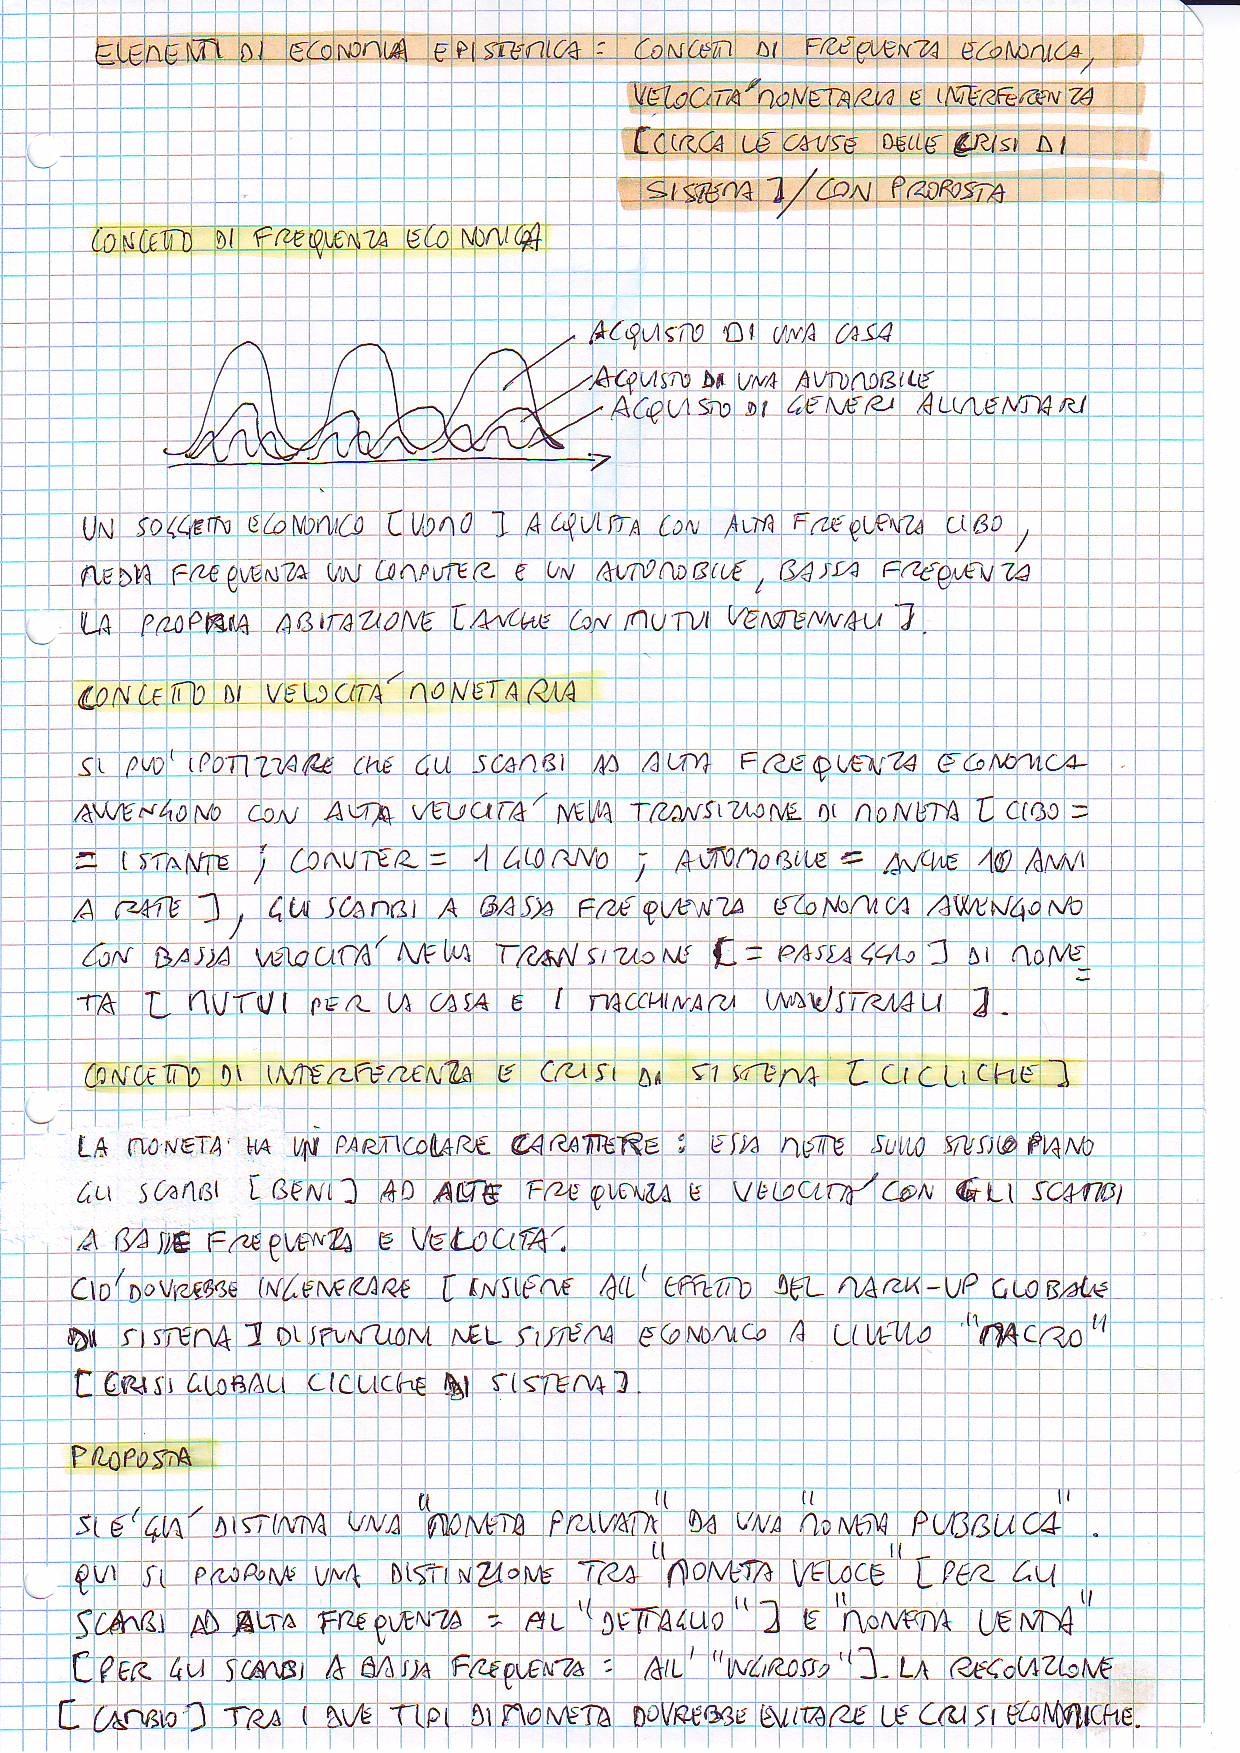 ELEMENTI DI ECONOMIA EPISTEMICA = CONCETTI DI FREQUENZA ECONOMICA,
VELOCITA' MONETARIA E INTERFERENZA
[CIRCA LE CAUSE DELLE CRISI DI
SISTEMA] / CON PROPOSTA
CONCETTO DI FREQUENZA ECONOMICA
ACQUISTO DI UNA CASA
ACQUISTO DI UNA AUTOMOBILE
ACQUISTO DI GENERI ALIMENTARI
UN SOGGETTO ECONOMICO [UOMO] ACQUISTA CON ALTA FREQUENZA CIBO,
MEDIA FREQUENZA UN COMPUTER E UN AUTOMOBILE, BASSA FREQUENZA
LA PROPRIA ABITAZIONE [ANCHE CON MUTUI VENTENNALI].
CONCETTO DI VELOCITA' MONETARIA
SI PUO' IPOTIZZARE CHE GLI SCAMBI AD ALTA FREQUENZA ECONOMICA
AVVENGONO CON ALTA VELOCITA' NELLA TRANSIZIONE DI MONETA [CIBO =
= ISTANTE ; COMUTER = 1 GIORNO ; AUTOMOBILE = ANCHE 10 ANNI
A RATE], GLI SCAMBI A BASSA FREQUENZA ECONOMICA AVVENGONO
CON BASSA VELOCITA' NELLA TRANSIZIONE [= PASSAGGIO] DI MONE=
TA [MUTUI PER LA CASA E I MACCHINARI INDUSTRIALI].
CONCETTO DI INTERFERENZA E CRISI DI SISTEMA [CICLICHE]
LA MONETA HA UN PARTICOLARE CARATTERE : ESSA METTE SULLO STESSO PIANO
GLI SCAMBI [BENI] AD ALTE FREQUENZA E VELOCITA' CON GLI SCAMBI
A BASSE FREQUENZA E VELOCITA'.
CIO' DOVREBBE INGENERARE [INSIEME ALL' EFFETTO DEL MARK-UP GLOBALE
DI SISTEMA] DISFUNZIONI NEL SISTEMA ECONOMICO A LIVELLO "MACRO"
[CRISI GLOBALI CICLICHE DI SISTEMA].
PROPOSTA
SI E' GIA' DISTINTA UNA "MONETA PRIVATA" DA UNA "MONETA PUBBLICA".
QUI SI PROPONE UNA DISTINZIONE TRA "MONETA VELOCE" [PER GLI
SCAMBI AD ALTA FREQUENZA = AL "DETTAGLIO"] E "MONETA LENTA"
[PER GLI SCAMBI A BASSA FREQUENZA = ALL' "INGROSSO"]. LA REGOLAZIONE
[CAMBIO] TRA I DUE TIPI DI MONETA DOVREBBE EVITARE LE CRISI ECONOMICHE.